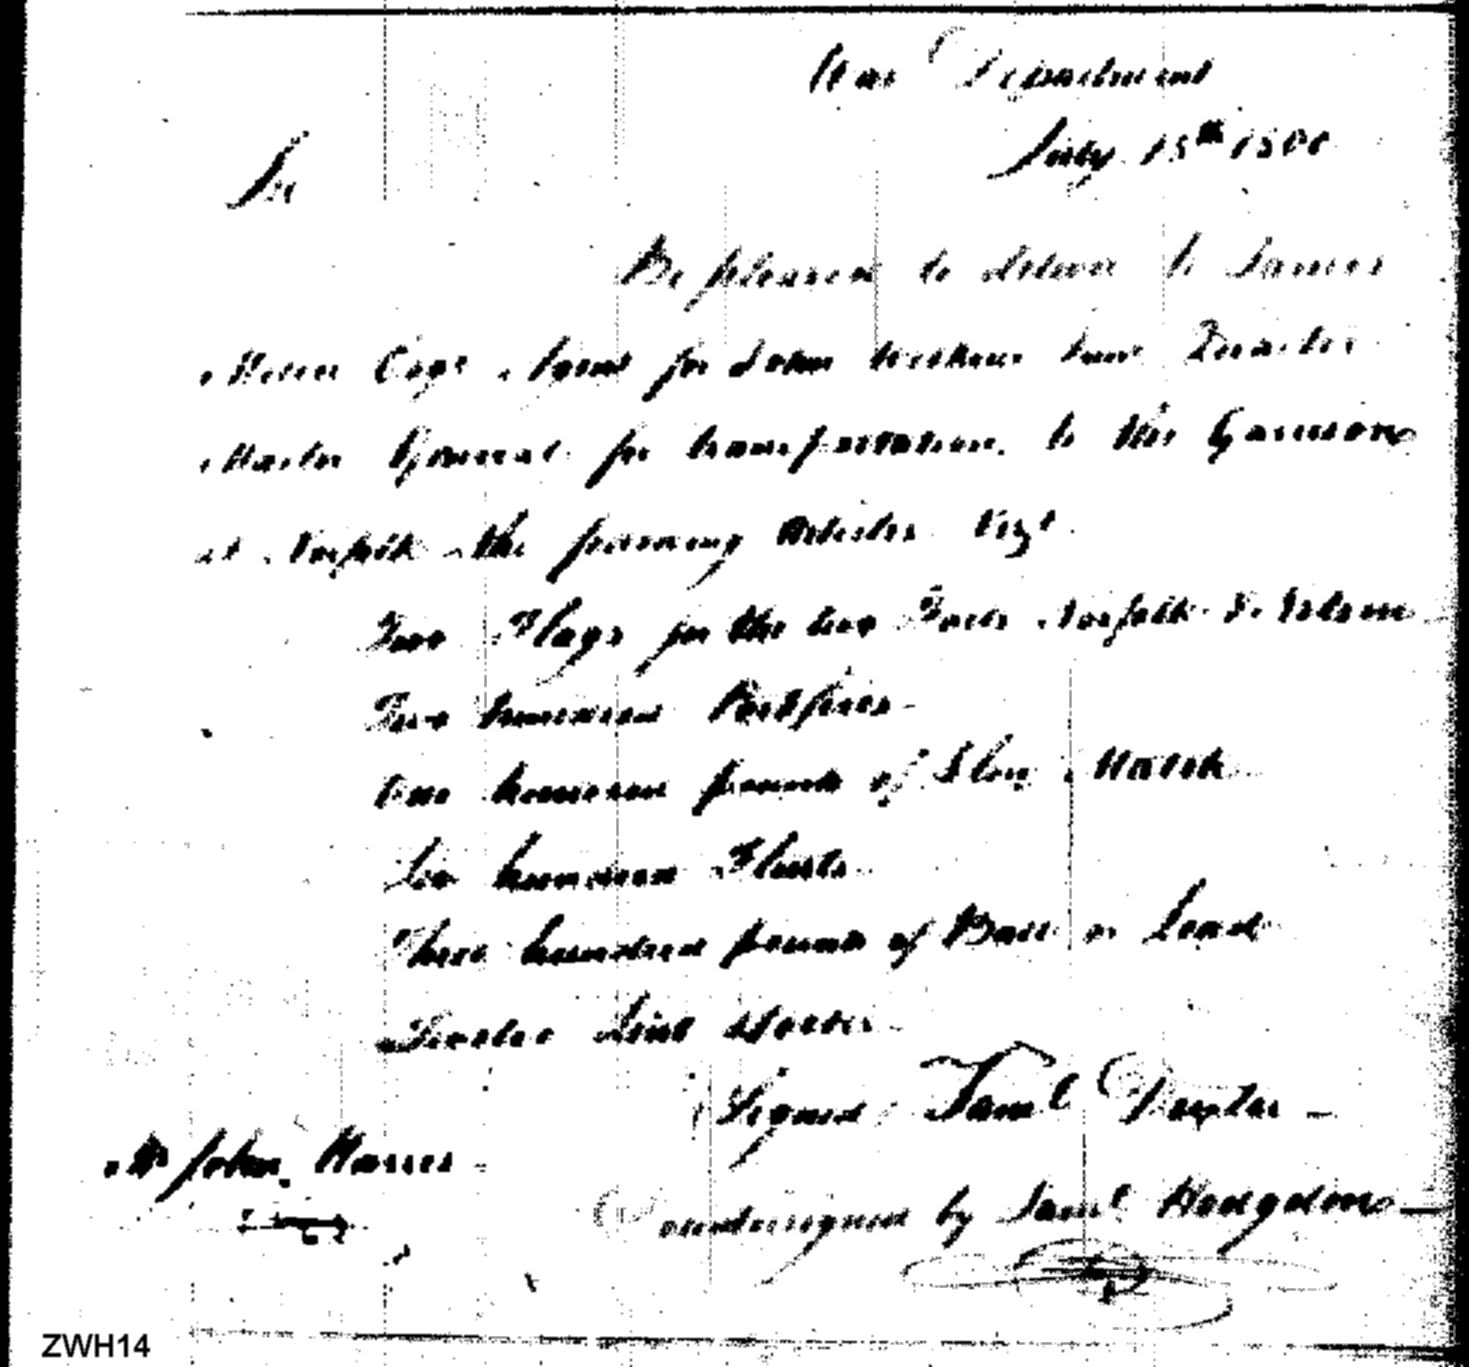 War Department
July 15th 1800
Sir
Be pleased to deliver to James
Miller Esqr Agent for John Wilkins Junr Quarter
Master General for transportation to the Garrison
at Norfolk the following Articles Vizt
Two Flags for the two Forts Norfolk & Nelson
Two hundred Portfires
One hundred pounds of Slow Match
Six hundred Flints
Three hundred pounds of Ball or Lead
Twelve Lint Stocks
Signed Saml Dexter
Mr John Harris
Countersigned by Saml Hodgdon
ZWH14